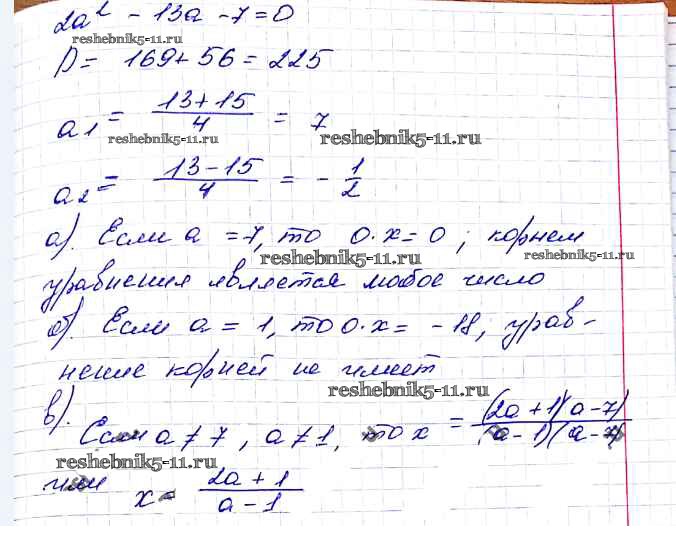 2a² - 13a - 7 = 0
reshebnik5-11.ru
D = 169 + 56 = 225
a₁ = (13 + 15)/4 = 7
reshebnik5-11.ru reshebnik5-11.ru
a₂ = (13 - 15)/4 = - 1/2
а). Если a = 7, то 0·x = 0; корнем
reshebnik5-11.ru reshebnik5-11.ru
уравнения является любое число
б). Если a = 1, то 0·x = -18, урав-
нение корней не имеет
reshebnik5-11.ru
в).
Если a ≠ 7, a ≠ 1, то x = (2a + 1)(a - 7)/(a - 1)(a - 7)
reshebnik5-11.ru
или x = (2a + 1)/(a - 1)